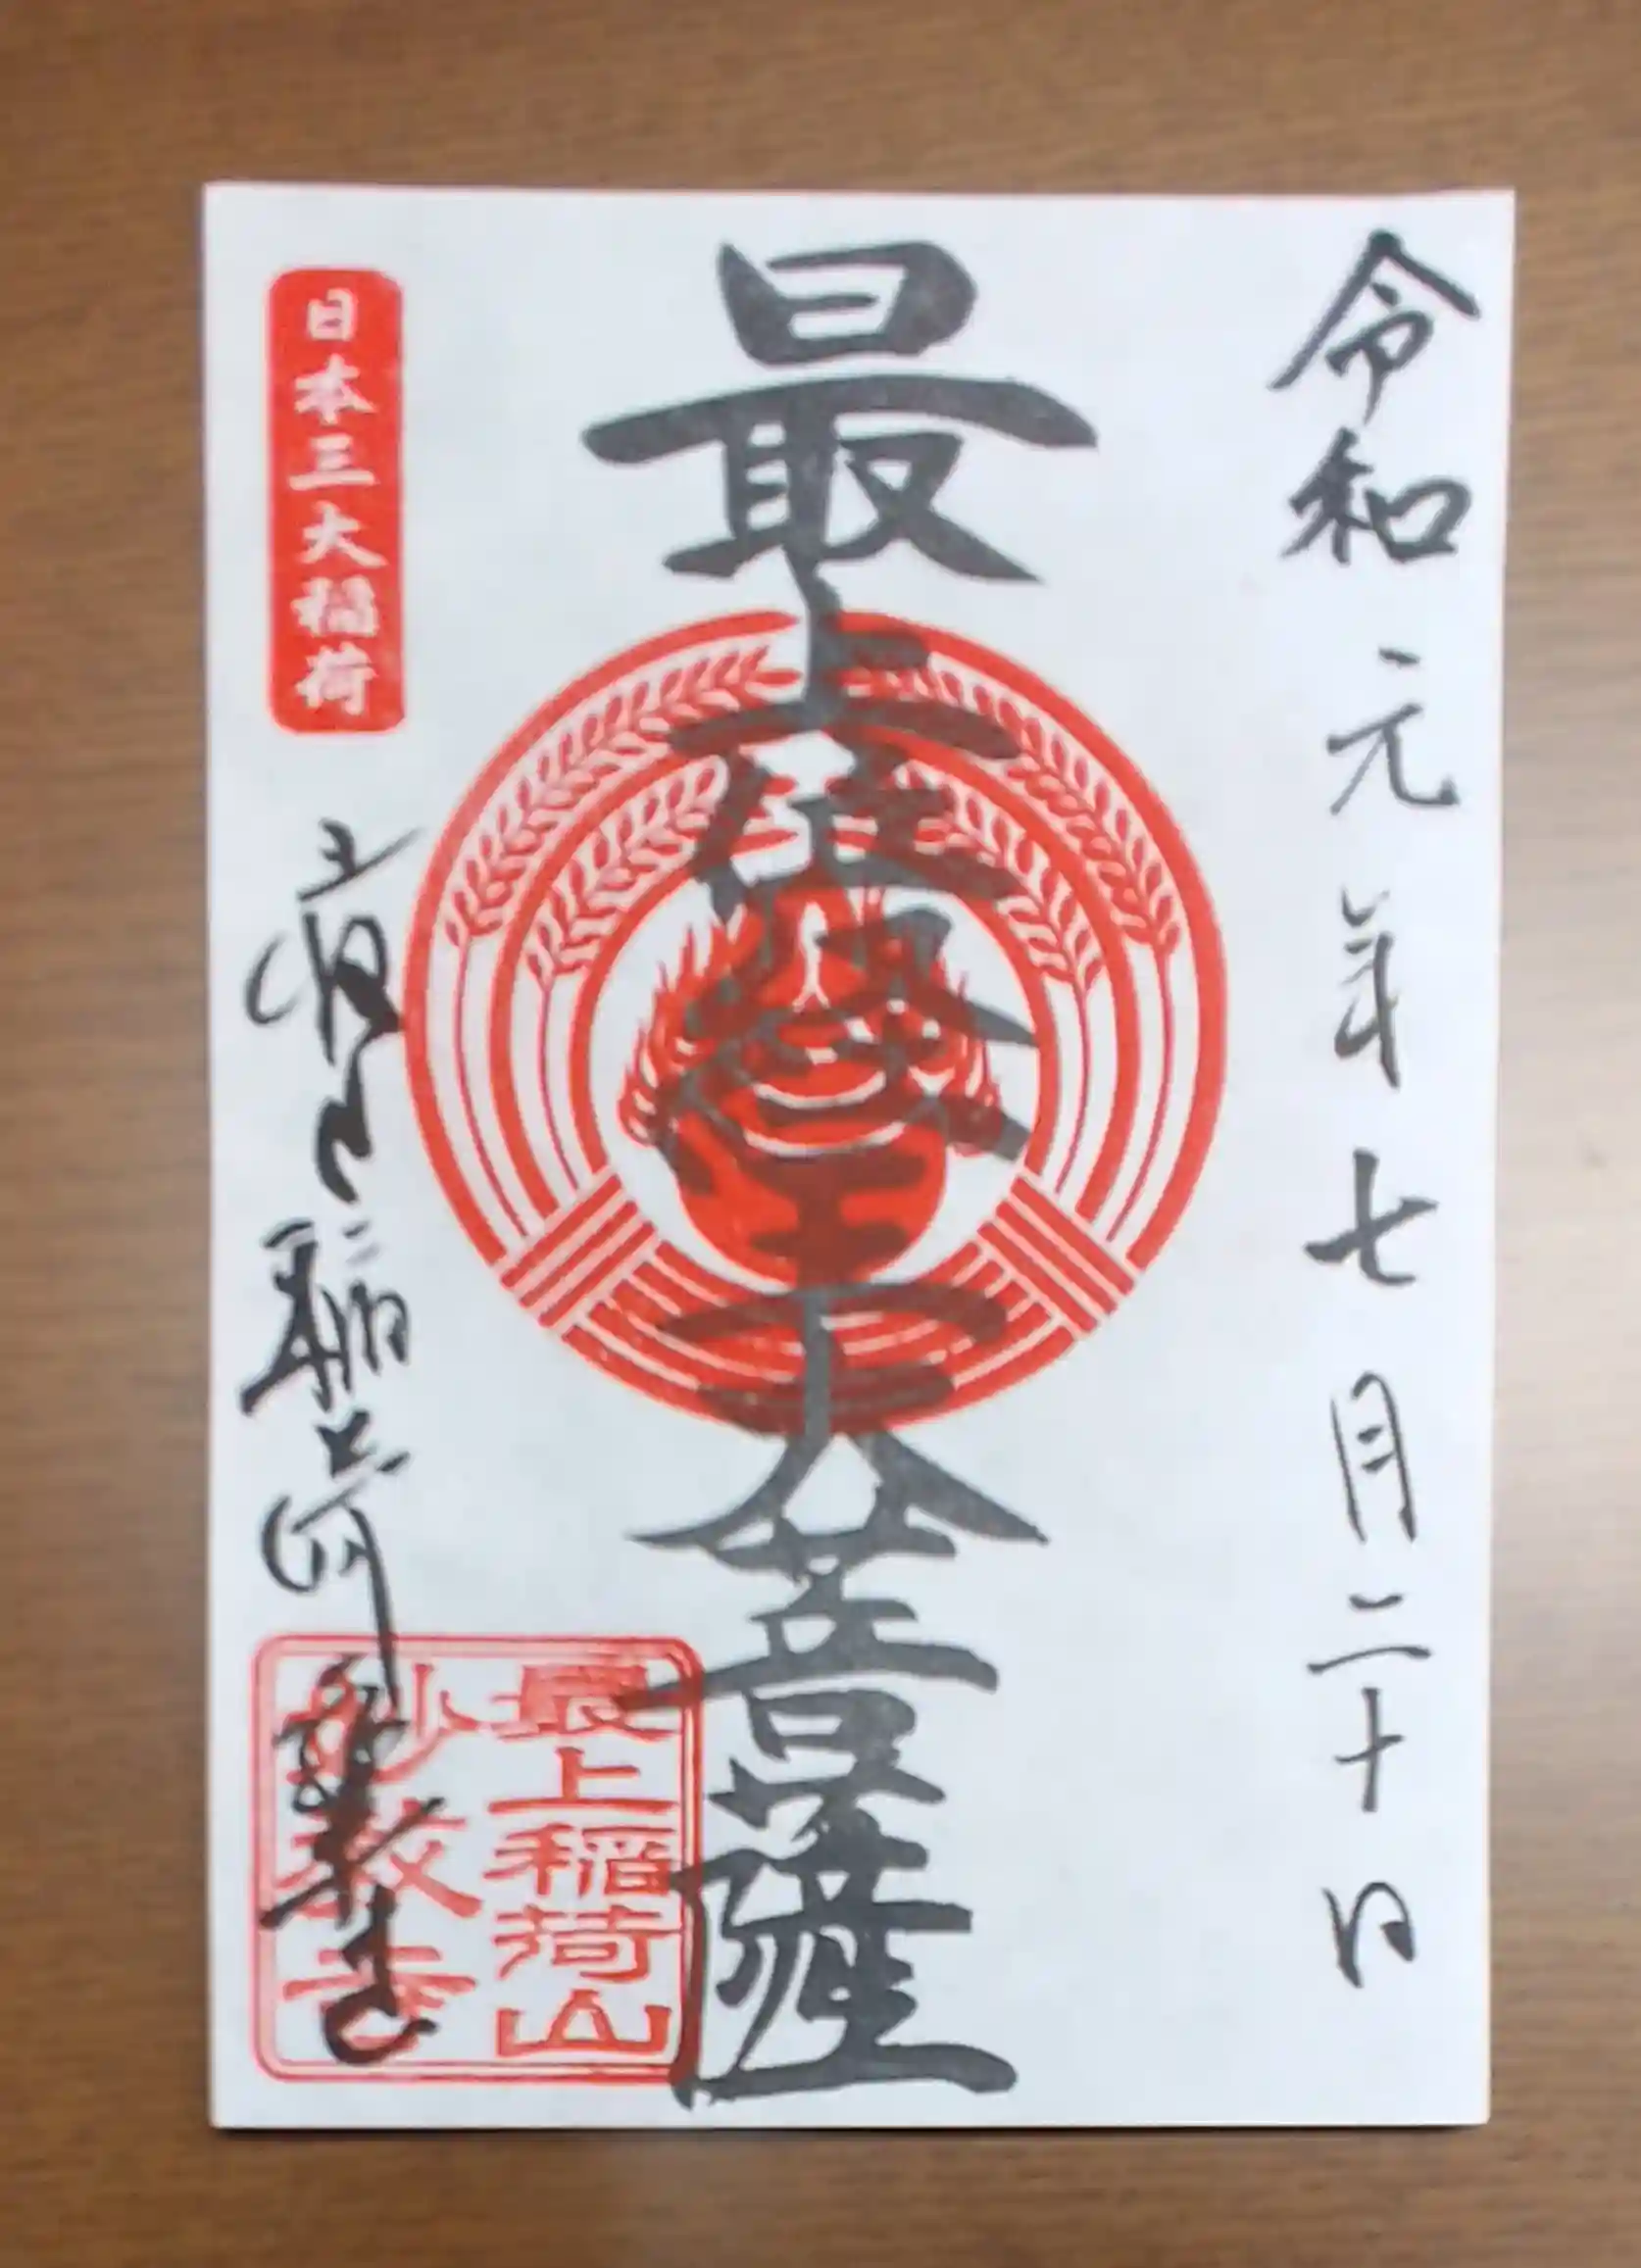 令和元年七月二十日
最上位経王大菩薩
日本三大稲荷
最上稲荷山
妙教寺